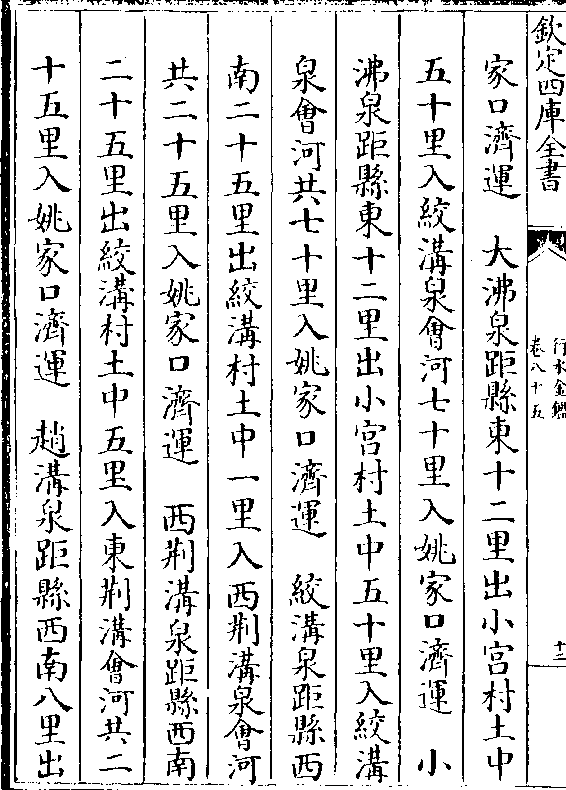 欽定四庫全書
行水金鑑
卷八十五
十二
家口濟運　大沸泉距縣東十二里出小宫村土中
五十里入絞溝泉會河七十里入姚家口濟運　小
沸泉距縣東十二里出小宫村土中五十里入絞溝
泉會河共七十里入姚家口濟運　絞溝泉距縣西
南二十五里出絞溝村土中一里入西荆溝泉會河
共二十五里入姚家口濟運　西荆溝泉距縣西南
二十五里出絞溝村土中五里入東荆溝會河共二
十五里入姚家口濟運　趙溝泉距縣西南八里出